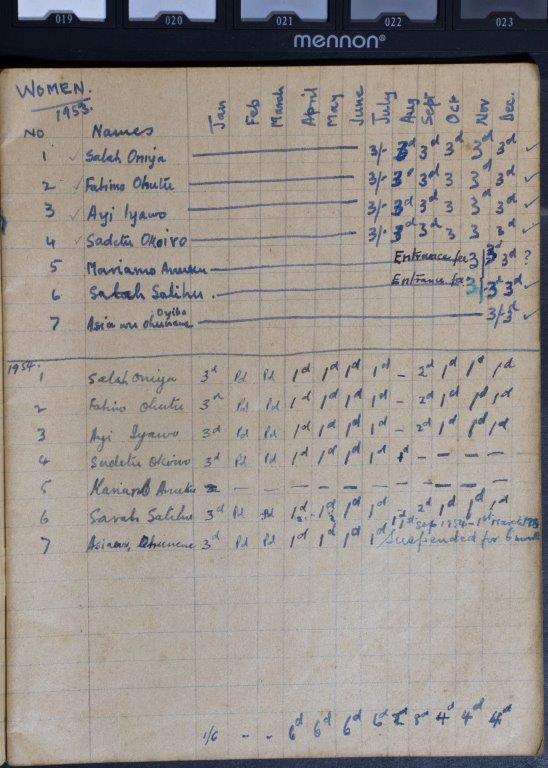 019 020 021 022 023
mennon®
WOMEN.
1953.
NO Names Jan Feb March April May June July Aug Sept Oct Nov Dec.
1 ✓ Salah Oniya 3/- 3d 3d 3d 3d 3d ✓
2 ✓ Fatimo Ohutu 3/- 3d 3d 3 3d 3d ✓
3 ✓ Ayi Iyawo 3/- 3d 3d 3 3d 3d ✓
4 ✓ Sadetu Okoivo 3/- 3d 3d 3 3 3d ✓
5 Mariamo Entrance fee 3/ 3d 3d ?
6 Salihu Entrance fee 3/ 3d 3d ✓
7 3/- 3d ✓
1954.
1 Salah Oniya 3d Pd Pd 1d 1d 1d 1d - 2d 1d 1d 1d
2 Fatimo Ohutu 3d Pd Pd 1d 1d 1d 1d - 2d 1d 1d 1d
3 Ayi Iyawo 3d Pd Pd 1d 1d 1d 1d - 2d 1d 1d 1d
4 Sadetu Okoivo 3d Pd Pd 1d 1d 1d 1d 1d - - - -
5 - - - - - - - - - - -
6 Sarah Salihu 3d Pd Pd 1d 1d 1d 1d 2d 1d 1d 1d
1st Sep 1954 - 1st March
7 3d Pd Pd 1d 1d 1d 1d Suspended for 6
1/6 - - 6d 6d 6d 6d 4d 4d 4d